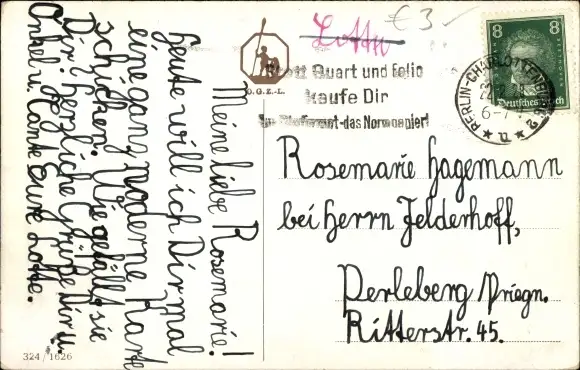 Meine liebe Rosemarie!
heute will ich Dir mal
eine ganz moderne Karte
schicken. Wie gefällt sie
Dir? herzliche Grüße Dir u.
Onkel u. Tante Eure Lotte.
324/1626
O.G.Z.-L.
Lotte
€ 3-
statt Quart und Folio
kaufe Dir
das Normpapier!
8 8
Deutsches Reich
BERLIN-CHARLOTTENBURG 2
6-7
* u *
Rosemarie Hagemann
bei Herrn Jelderhoff,
Perleberg Priegn.
Ritterstr. 45.